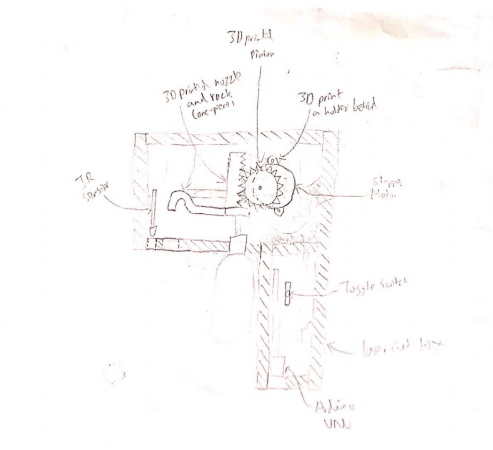 3D printed
Pinion
3D printed nozzle
and rack
(one-piece)
3D print
a holder behind
IR
sensor
Motor
Toggle Switch
Arduino
UNO